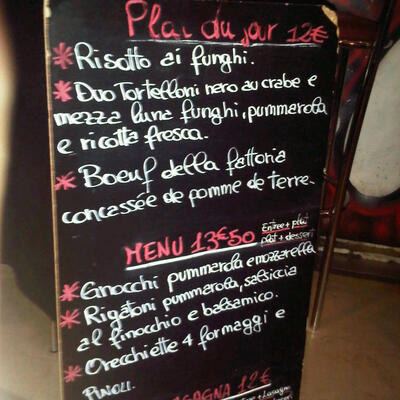 Plat du jour 12€
* Risotto ai funghi.
* Duo Tortelloni nero au crabe e
mezza luna funghi, pummarola
e ricotta fresca.
* Boeuf della fattoria
concassée de pomme de terre.
MENU 13€50 Entrée + plat
plat + dessert
* Gnocchi pummarola e mozzarella
* Rigatoni pummarola, salsiccia
al finocchio e balsamico.
* Orecchiette 4 formaggi e
Pinoli.
LASAGNA 12€